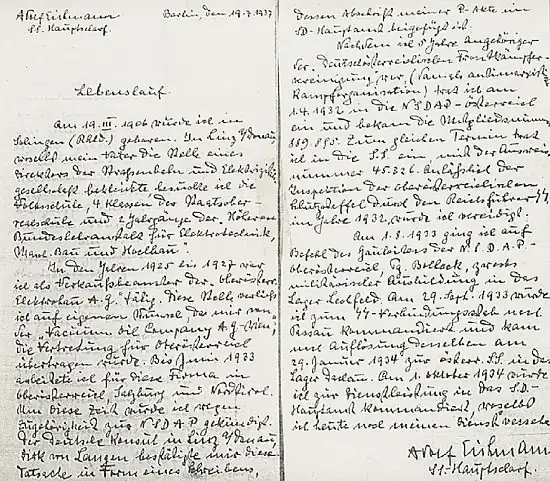 Adolf Eichmann
SS. Hauptscharf.
Berlin, den 19.7.1937
Lebenslauf.
Am 19. III. 1906 wurde ich in
Solingen (Rhld.) geboren. In Linz a/Donau,
woselbst mein Vater die Stelle eines
Direktors der Strassenbahn und Elektrizitäts-
gesellschaft bekleidete besuchte ich die
Volksschule, 4 Klassen der Staatsober-
realschule und 2 Jahrgänge der Höheren
Bundeslehranstalt für Elektrotechnik,
Masch. Bau und Hochbau.
In den Jahren 1925 bis 1927 war
ich als Verkaufsbeamter der "Oberösterr.
Elektrobau A.G." tätig. Diese Stelle verliess
ich auf eigenen Wunsch da mir von
der "Vacuum Oil Company A.G.-Wien"
die Vertretung für Oberösterreich
übertragen wurde. Bis Juni 1933
arbeitete ich für diese Firma in
Oberösterreich, Salzburg und Nordtirol.
Um diese Zeit wurde ich wegen
Zugehörigkeit zur NSDAP gekündigt.
Der deutsche Konsul in Linz a/Donau,
Dirk von Langen bestätigte mir diese
Tatsache in Form eines Schreibens,
dessen Abschrift meiner P-Akte im
SD-Hauptamt beigefügt ist.
Nachdem ich 5 Jahre Angehöriger
der "Deutschösterreichischen Frontkämpfer-
vereinigung" war, (damals antimarxist.
Kampforganisation) trat ich am
1.4.1932 in die NSDAP-Österreich
ein und bekam die Mitgliedsnummer
889.895. Zum gleichen Termin trat
ich in die SS. ein, mit der Ausweis-
nummer 45.326. Anlässlich der
Inspektion der oberösterreichischen
Schutzstaffel durch den Reichsführer SS
im Jahre 1932, wurde ich vereidigt.
Am 1.8.1933 ging ich auf
Befehl des Gauleiters der N.S.D.A.P-
Oberösterreich, Pg. Bolleck, zwecks
militärischer Ausbildung in das
Lager Lechfeld. Am 29. Sept. 1933 wurde
ich zum SS-Verbindungsstab nach
Passau kommandiert und kam
nach Auflösung desselben am
29. Januar 1934 zur österr. SS. in das
Lager Dachau. Am 1. Oktober 1934 wurde
ich zur Dienstleistung in das S.D.-
Hauptamt kommandiert, woselbst
ich heute noch meinen Dienst versehe.
Adolf Eichmann
SS-Hauptscharf.